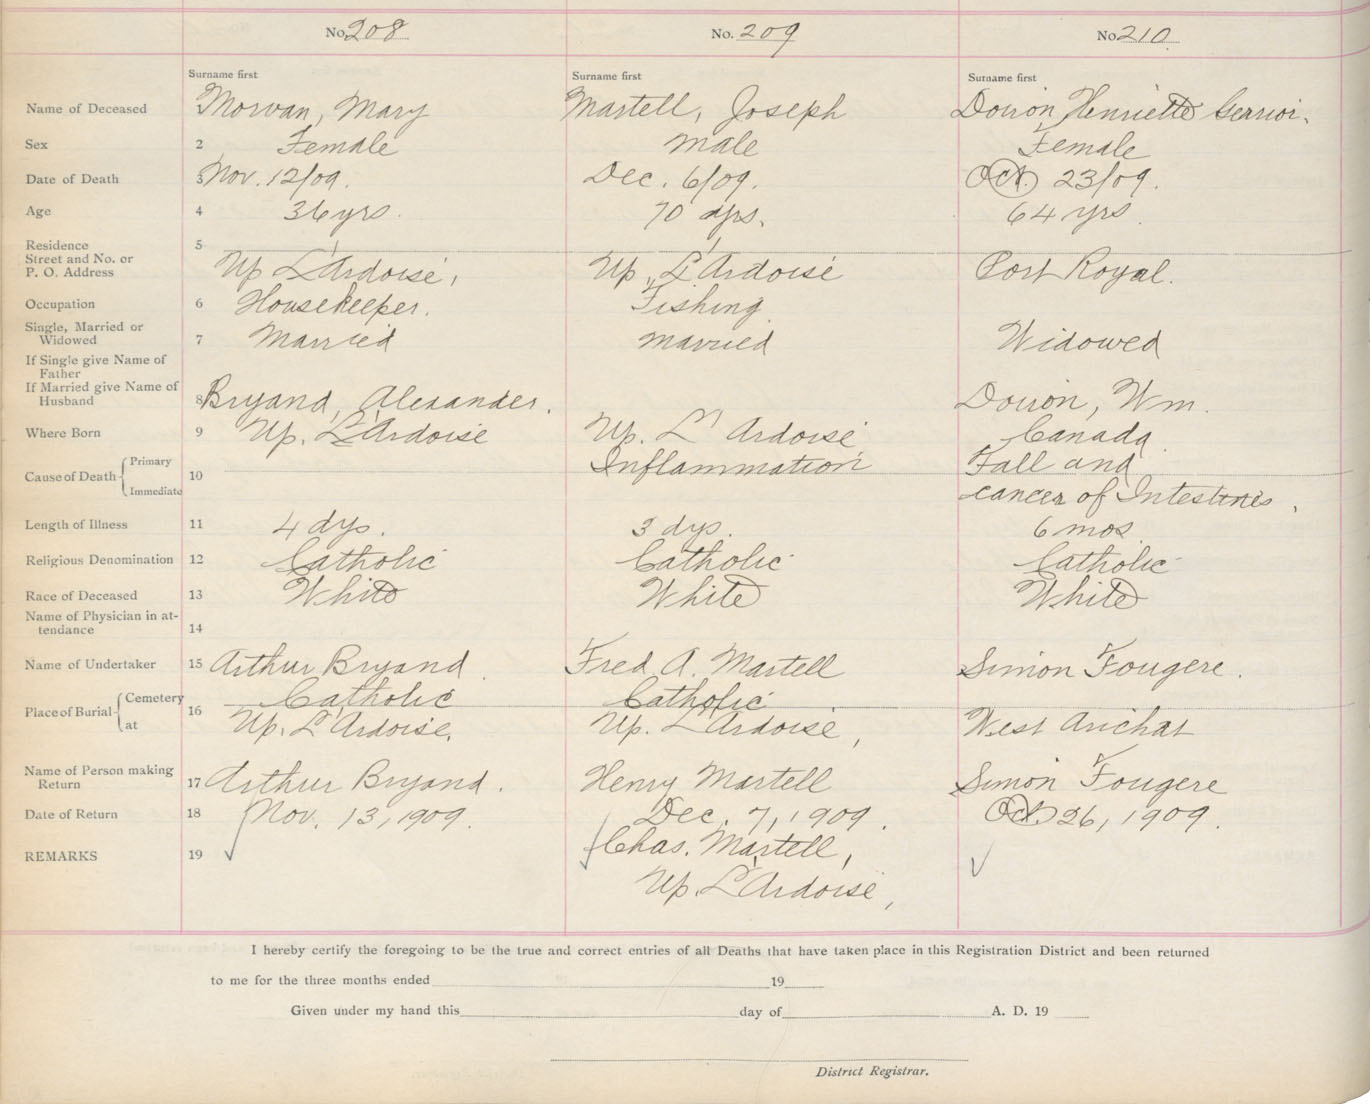 No. 208
No. 209
No. 210
Surname first
Surname first
Surname first
Name of Deceased 1 Morvan, Mary
Martell, Joseph
Doiron, Henriette Gerrior.
Sex 2 Female
Male
Female
Date of Death 3 Nov. 12/09.
Dec. 6/09.
Oct. 23/09.
Age 4 36 yrs.
70 yrs.
64 yrs
Residence
Street and No. or
P. O. Address
5
Up L'Ardoise,
Up. L'Ardoise
Port Royal.
Occupation 6 Housekeeper.
Fishing
Single, Married or
Widowed
7 Married
Married
Widowed
If Single give Name of
Father
If Married give Name of
Husband
8 Bryand, Alexander.
Doiron, Wm.
Where Born 9 Up. L'Ardoise
Up. L'Ardoise
Canada
Cause of Death { Primary
Immediate
10
Inflammation
Fall and
cancer of Intestines.
Length of Illness 11 4 dys.
3 dys.
6 mos
Religious Denomination 12 Catholic
Catholic
Catholic
Race of Deceased 13 White
White
White
Name of Physician in at-
tendance
14
Name of Undertaker 15 Arthur Bryand.
Fred A. Martell
Simon Fougere.
Place of Burial { Cemetery
at
16
Catholic
Up. L'Ardoise.
Catholic
Up. L'Ardoise,
West Arichat
Name of Person making
Return
17 Arthur Bryand.
Henry Martell
Simon Fougere
Date of Return 18 Nov. 13, 1909.
Dec. 7, 1909.
Oct. 26, 1909.
REMARKS 19
Chas. Martell,
Up. L'Ardoise,
I hereby certify the foregoing to be the true and correct entries of all Deaths that have taken place in this Registration District and been returned
to me for the three months ended 19
Given under my hand this day of A. D. 19
District Registrar.